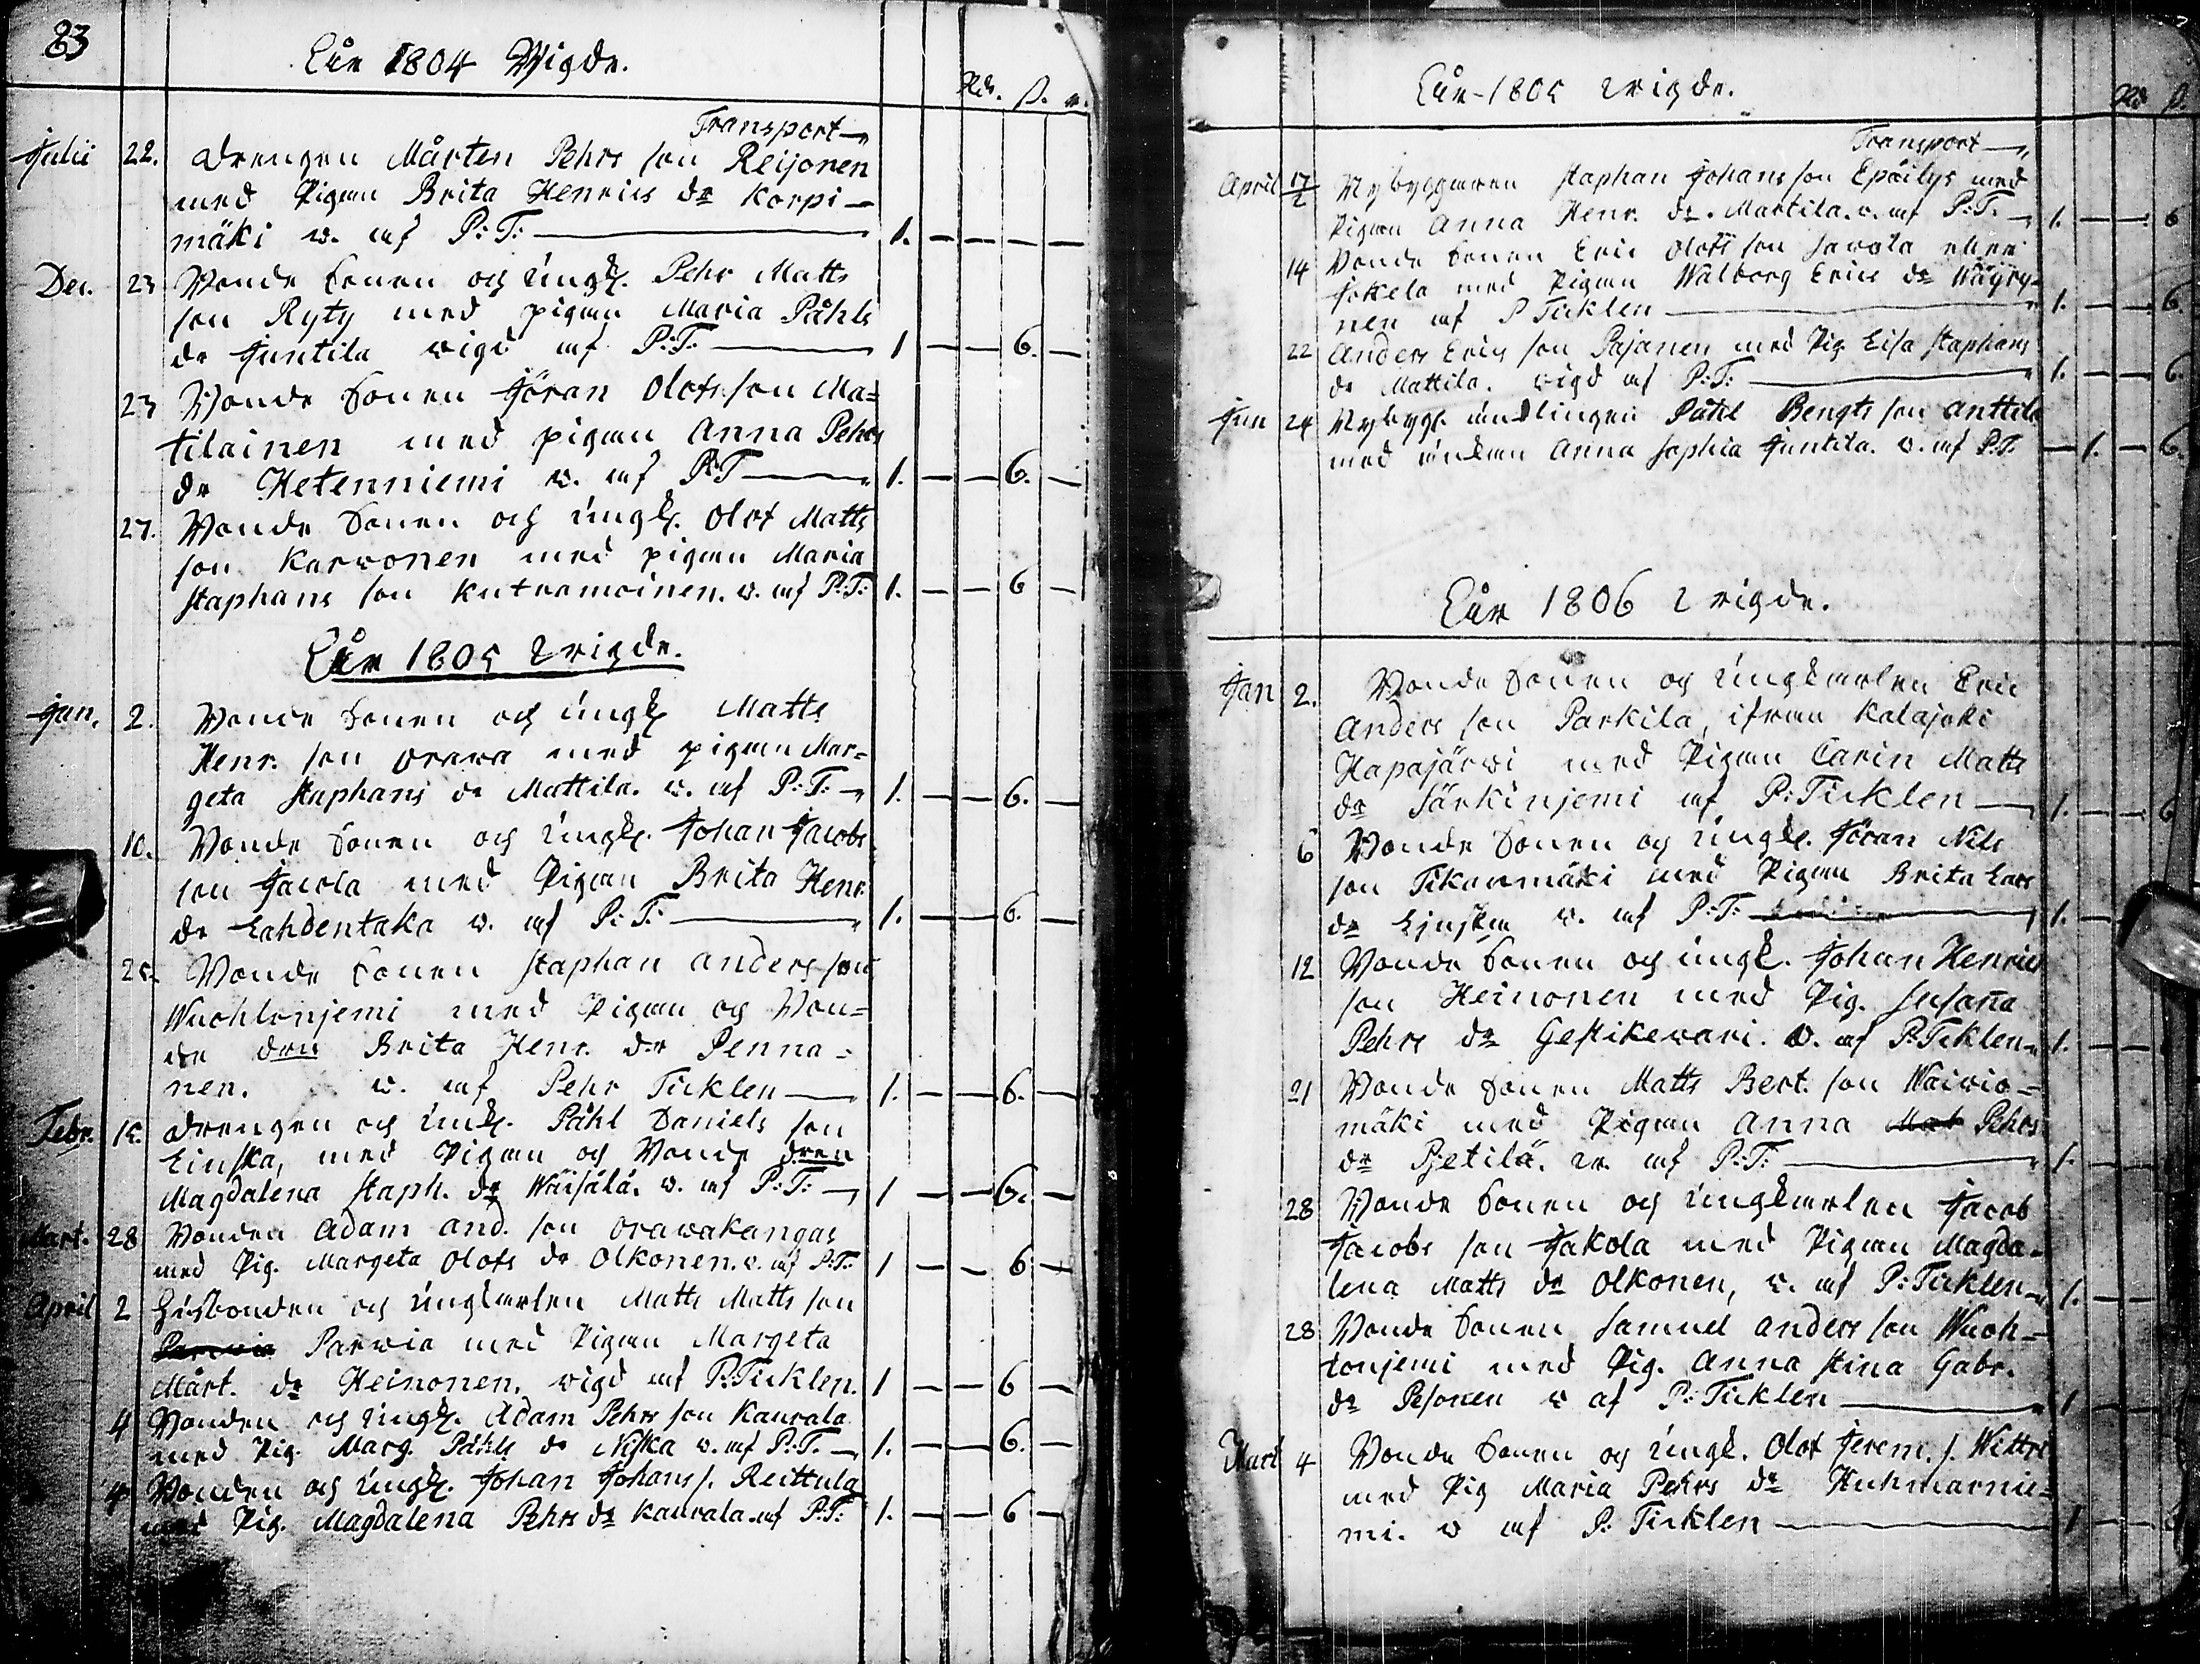 83
Åår 1804 Wigde.
Rd. ß. r.
Transport
Julii 22. Drengen Mårten Pehrs son Reijonen
med Pigan Brita Henrics dr Korpi-
mäki w. af P:T: 1. — — — —
Dec. 23 Bonde Sonen och Ungk. Pehr Matts
son Ryty med pigan Maria Påhls
dr Juntila wigd af P:T: 1 — — 6. —
23 Bonde Sonen Jöran Olofs son Ma=
tilainen med pigan Anna Pehrs
dr Hetenniemi w. af P:T 1. — — 6. —
27. Bonde Sonen och Ungk. Olof Matts
son Karwonen med pigan Maria
Staphans son Kutramoinen. w. af P:T: 1. — — 6 —
Åår 1805 Wigde.
Jan. 2. Bonde Sonen och Ungk Matts
Henr. son Orawa med pigan Mar=
geta Staphans dr Mattila. w. af P:T: 1. — — 6. —
10. Bonde Sonen och Ungk. Johan Jacobs
son Jacola med Pigan Brita Henr.
dr Lahdentaka w. af P:T: 1. — — 6. —
25. Bonde Sonen Staphan Anders son
Wuohtonjemi med Pigan och Bon=
de dren Brita Henr. dr Penna=
nen. w. af Pehr Ticklen 1. — — 6. —
Febr. 15. Drengen och Ungk. Påhl Daniels son
Linska, med Pigan och Bonde dren
Magdalena Staph. dr Wäisälä. w. af P:T: 1 — — 6. —
Mart. 28 Bonden Adam And. son Orawakangas
med Pig. Margeta Olofs dr Olkonen. w. af P:T: 1 — — 6 —
April 2 Husbonden och Ungkarlen Matts Matts son
Parwia med Pigan Margeta
Mårt. dr Heinonen. wigd af P:Ticklen. 1 — — 6 —
4 Bonden och Ungk. Adam Pehrs son Kaurala
med Pig. Marg. Påhls dr Niska w. af P:T. 1. — — 6. —
4 Bonden och Ungk. Johan Johans s. Reittula
med Pig. Magdalena Pehrs dr Kaurala af P:T: 1. — — 6 —
Åår 1805 Wigde.
Rd ß.
Transport
April Nybyggaren Staphan Johans son Epäilys med
Pigan Anna Henr. dr. Martila. w. af P:T. 1. — — 6
14 Bonde Sonen Eric Olofs son Savola eller
Jokela med Pigan Walborg Erics dr Wäyry=
nen af P Ticklen 1. — — 6.
22 Anders Erics son Pajanen med Pig Lisa Staphans
dr Mattila. wigd af P:T: 1. — — 6.
Jun 24 Nybygg. Enklingen Påhl Bengts son Anttila
med Enkan Anna Sophia Juntila. w. af P:T. 1. — 6.
Åår 1806 Wigde.
Jan 2. Bonde Sonen och Ungkarlen Eric
Anders son Parkila, ifrån Kalajoki
Hapajärwi med Pigan Carin Matts
dr Särkinjemi af P:Ticklen 1. — — 6
6 Bonde Sonen och Ungk. Jöran Nils
son Tikanmäki med Pigan Brita Lars
dr w. af P:T: 1. — —
12 Bonde Sonen och Ungk. Johan Henrics
son Heinonen med Pig. Susanna
Pehrs dr Gestikewari. w. af P:Ticklen 1. — —
21 Bonde Sonen Matts Bert. son Waivio=
mäki med Pigan Anna Pehrs
dr Pjetilä. w. af P:T: 1. — —
28 Bonde Sonen och Ungkarlen Jacob
Jacobs son Jakola med Pigan Magda-
lena Matts dr Olkonen, w. af P:Ticklen 1. — —
28 Bonde Sonen Samuel Anders son Wuoh-
tonjemi med Pig. Anna Stina Gabr.
dr Pesonen w af P:Ticklen 1 — —
Mart 4 Bonde Sonen och Ungk. Olof Jerem. s. Wittri
med Pig Maria Pehrs dr Huhmarnie=
mi. w af P: Ticklen 1 — —